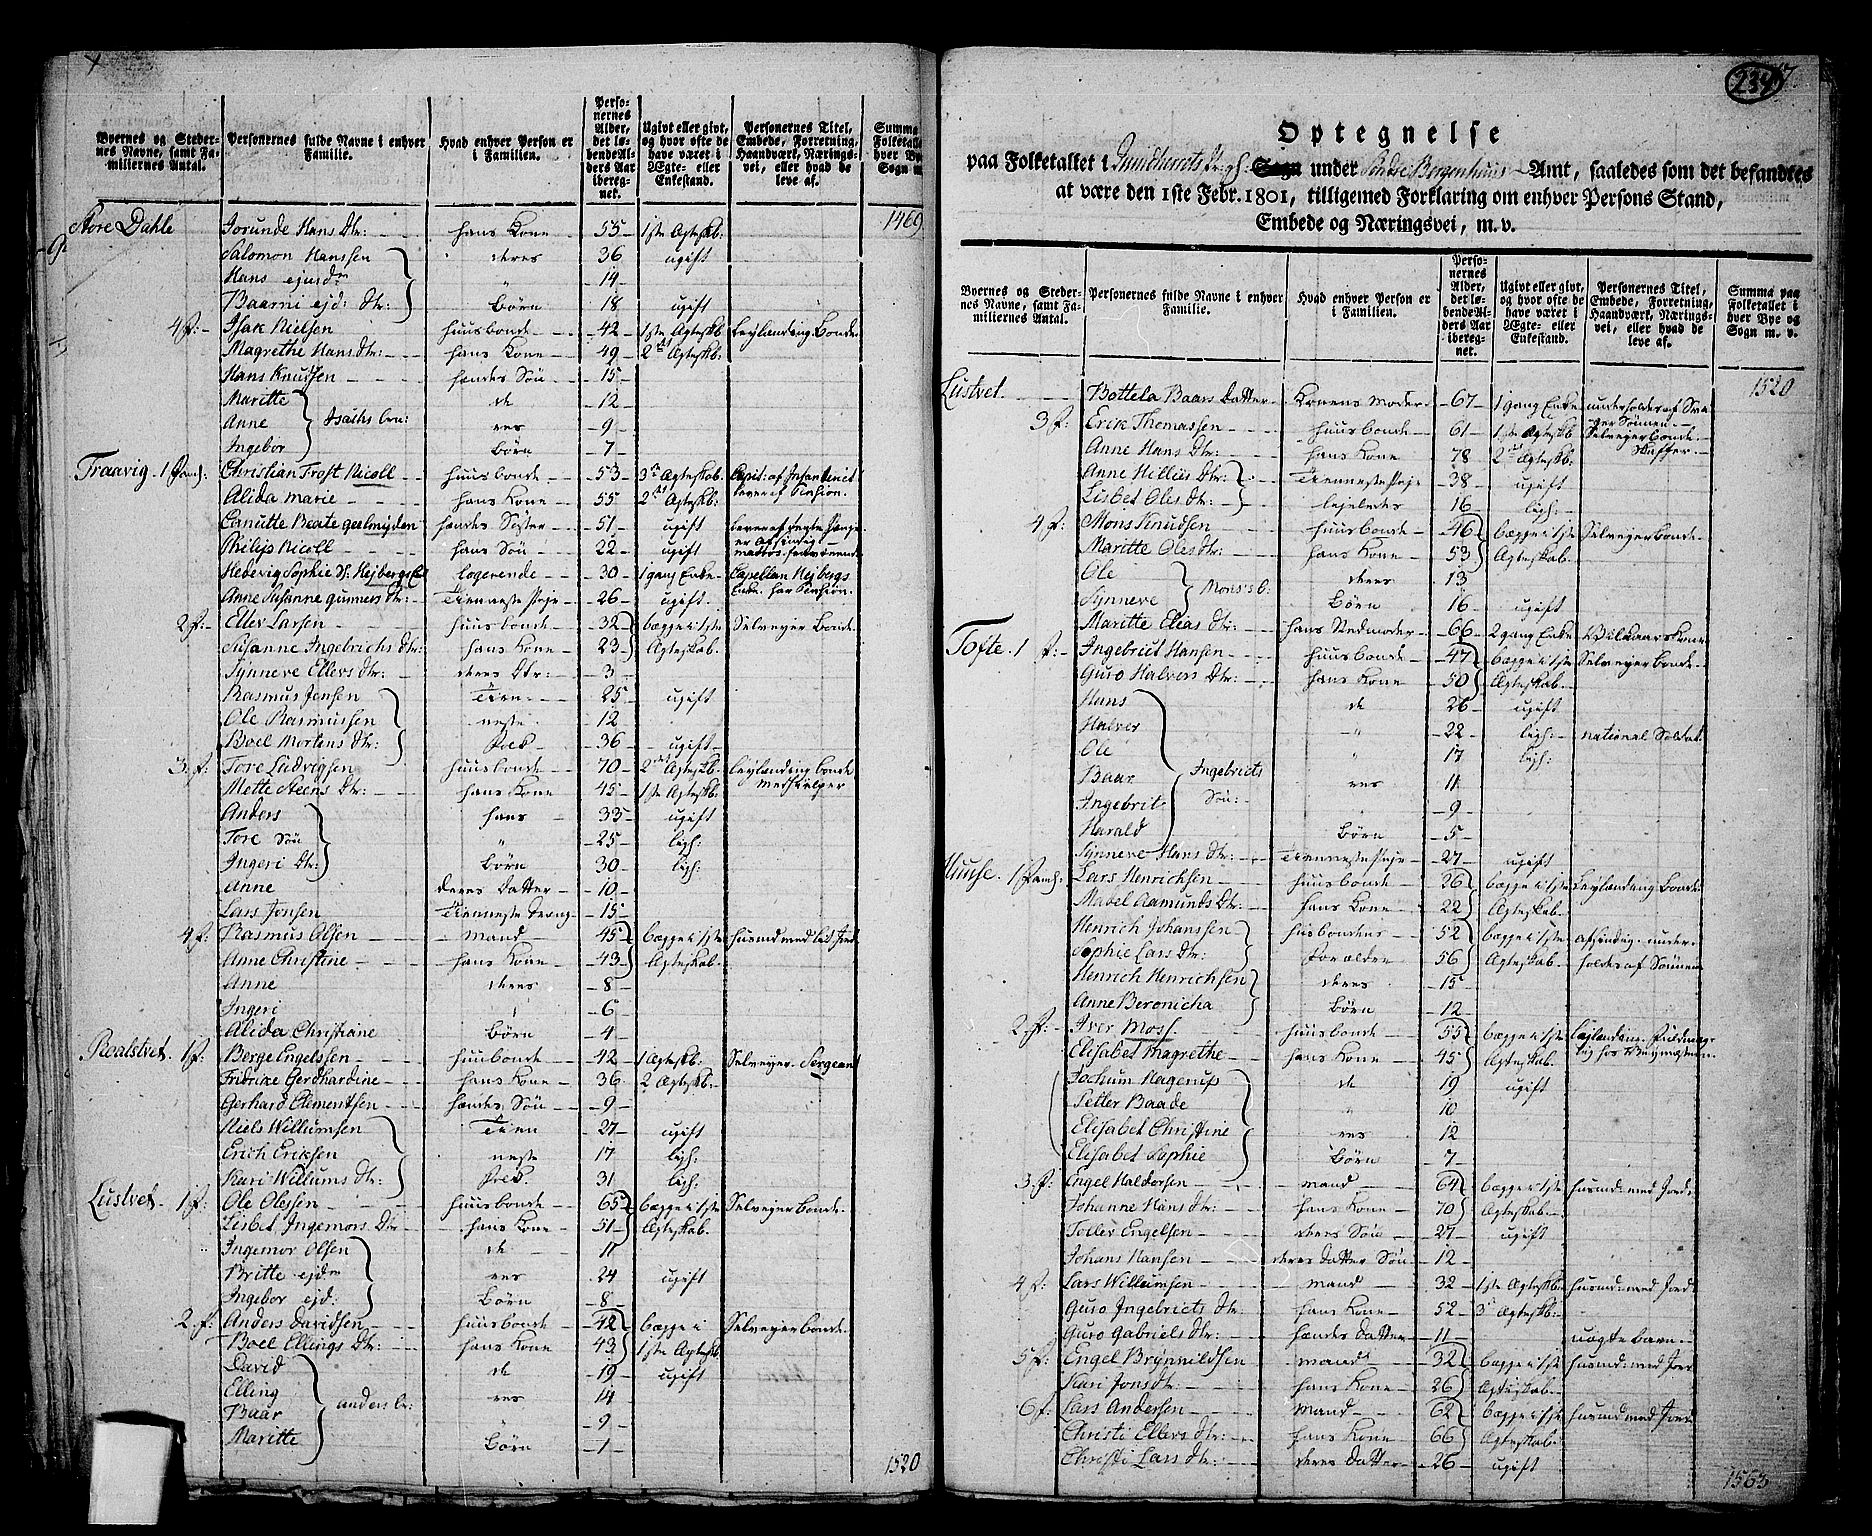 Byernes og Steder-
nes Navne, samt Fa-
miliernes Antal.
Personernes fulde Navne i enhver
Familie.
Hvad enhver Person er
i Familien.
Perso-
nernes
Alder,
det lø-
bende Al-
ders Aar
iberegnet.
Ugivt eller givt,
og hvor ofte de
have været i
Ægte- eller
Enkestand.
Personernes Titel,
Embede, Forretning,
Haandværk, Nærings-
vei, eller hvad de
leve af.
Summa
Folketallet
hver By
Sogn m
Store Dahle Jorunde Hans Dtr: hans Kone 55 1ste Ægteskb: 1469
Salomon Hanssen deres 36 ugift
Hans ejusdm " 14
Baarni ejd: Dtr: Børn 18 ugift
4 f: Isak Nielsen huusbonde 42 1ste Ægteskb Leylænding Bonde
Magrethe Hans dtr: hans Kone 49 2det Ægteskb:
Hans Knudssen hendes Søn 15
Maritte de 12
Anne Isachs bø: res 9
Ingebor Børn 7
Traavig 1 Famh. Christian Frost Nicoll huusbonde 53 3de Ægteskab Capit: af Infanteriet
lever af Pension.
Alida Marie hans Kone 55 2det Ægteskb.
Canutte Beate geelmyden hendes Søster 51 ugift
Philip Nicoll hans Søn 22 ugift
Hedevig Sophie Sl: Hejbergs logerende 30 1 gang Enke Capellan Hejbergs
Enke. har Pension.
Anne Susanne gunners dtr: Tienneste Pige 26 ugift
2 f: Eller Larsen huusbonde 32 begge i 1ste Selveyer Bonde
Susanne Ingebrichs dtr: hans Kone 23 Ægteskab.
Synneve Ellers dtr: deres Dtr: 3
Rasmus Jensen Tien 25 ugift
Ole Rasmussen neste 12
Boel Mortens dtr: Folk 36 ugift
3 f: Tore Ludvigsen huusbonde 70 2det Ægteskb. Leylænding bonde
Medhielper
Mette Steens dtr: hans Kone 45 1ste Ægteskb.
Anders hans 33 ugift
Tore Søn " 25 ligh:
Ingeri Dtr: Børn 30 ligh:
Anne deres Datter 10
Lars Jonsen Tienneste Dreng 15
4 f: Rasmus Olsen Mand 45 begge i 1ste husmd med lit Jord
Anne Christine hans Kone 43 Ægteskab.
Anne deres 8
Ingeri 6
Alida Christiane Børn 4
Realstvet. 1 f: Berge Engelssen huusbonde 42 1 Ægteskb: Selveyer. Sergeant
Fridrike Gerdhardine hans Kone 36 2 Ægteskb.
Gerhard Clementsen hendes Søn 9
Niels Willumsen Tien 27 ugift
Erich Eriksen neste 17 ligh:
Kari Willums dtr: Folk. 31 ligh:
Lustvet. 1 f: Ole Olessen huusbonde 65 begge i 1ste Selveyer Bonde.
Lisbet Ingemors Dtr hans Kone 51 Ægteskab.
Ingemor Olsen de 17
Britte ejdm res 24 ugift
Ingebor ejd: Børn 8
2 f: Anders Davidsen huusbonde 42 begge i Selveyer bonde.
Boel Ellings dtr: hans Kone 43 1ste Ægteskb
David de 19 ugift
Elling anders bø: res 14
Baar " 9
Maritte Børn 1
1520
234
Optegnelse
paa Folketallet i Qvindherrets Prgh. Sogn under Søndre Bergenhuus Amt, saaledes som det befandtes
at være den 1ste Febr. 1801, tilligemed Forklaring om enhver Persons Stand,
Embede og Næringsvei, m. v.
Byernes og Steder-
nes Navne, samt Fa-
miliernes Antal.
Personernes fulde Navne i enhver
Familie.
Hvad enhver Person er
i Familien.
Perso-
nernes
Alder,
det lø-
bende Al-
ders Aar
ibereg-
net.
Ugivt eller givt,
og hvor ofte de
have været i
Ægte- eller
Enkestand.
Personernes Titel,
Embede, Forretning,
Haandværk, Nærings-
vei, eller hvad de
leve af.
Summa paa
Folketallet i
hver Bye og
Sogn m. v.
Lustvet Bottela Baars Datter Konens Moder 67 1 gang Enke underholdes af Svi-
ger Sønnen. 1520
3 f: Erik Thomassen huusbonde 61 1ste Ægteskb Selveyer bonde.
Anne Hans Dtr: hans Kone 78 2det Ægteskb:
Anne Hillies dtr: Tienneste Pige 38 ugift
Lisbet Oles dtr: 16 ligh:
4 f: Mons Knudsen huusbonde 46 begge i 1ste Selveyer bonde.
Maritte Oles dtr: hans Kone 53 Ægteskab.
Ole Mons's b. deres 13
Synneve Børn 16 ugift
Maritte Elias dtr: hans Stedmoder 66 2 gang Enke Vilkaars Kone
Tofte. 1 f: Ingebrict Hansen huusbonde 47 begge i 1ste Selveyer bonde.
Guro Halvers dtr: hans Kone 50 Ægteskab.
Hans de 26 ugift
Halver " 22 ligh: national Soldat
Ole " 17 ligh:
Baar Ingebricts res 11
Ingebrit Søn: " 9
Harald Børn 5
Synneve Hans dtr: Tienneste Pige 27 ugift
Huuse. 1 Famh. Lars Henrichsen huusbonde 26 begge i 1ste Leylænding bonde
Mabel Aamunds dtr: hans Kone 22 Ægteskab.
Henrich Johanssen husbondens 52 begge i 1ste afsindig. under-
Sophie Lars dtr: Forældre 56 Ægteskab. holdes af Sønnen
Henrich Henrichsen deres 15
Anne Beronicha Børn 12
2 f: Iver Moss. huusbonde 55 begge i 1ste
Elisabet Magrethe hans Kone 45 Ægteskab.
Jochum Hagerup de 19 ugift
Petter Baade " 10
Elisabet Christine res 12
Elisabet Sophie Børn 7
3 f: Engel Haldorsen Mand 64 begge i 1ste husmd: med Jord.
Johanne Hans dtr: hans Kone 70 Ægteskab.
Toller Engelsen deres Søn 27 ugift
Johans Hansen deres Datter Søn 12
4 f: Lars Willumsen Mand 32 1ste Ægteskb. husmd: med Jord.
Guro Ingebricts dtr. hans Kone 52 3de Ægteskb:
Guro Gabriels dtr: hendes Datter 11 uægte barn.
5 f: Engel Brynnildsen Mand 32 begge i 1ste husmd: med Jord
Kari Jons dtr: hans Kone 26 Ægteskab.
6 f: Lars Andersen Mand 62 begge i 1ste husmd med Jord
Christi Ellers dtr: hans Kone 66 Ægteskab:
Christi Lars dtr: deres Datter 26 ugift
1563